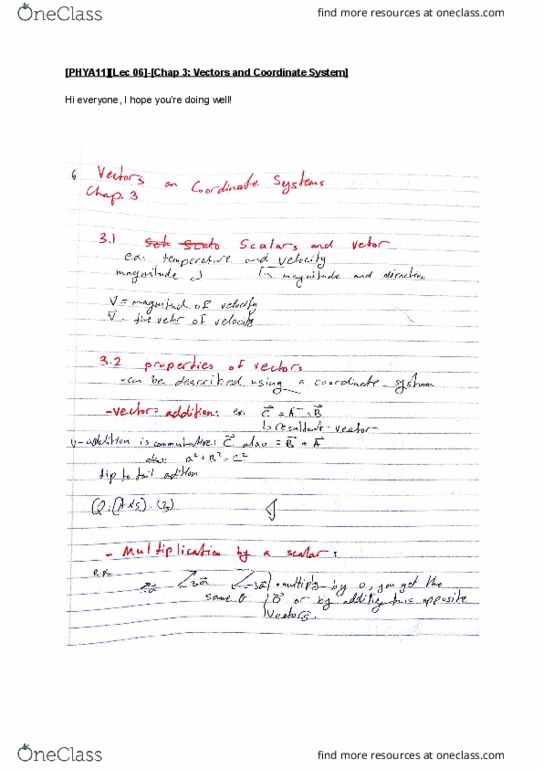 OneClass
find more resources at oneclass.com
[PHYA11][Lec 06]-[Chap 3: Vectors and Coordinate System]
Hi everyone, I hope you're doing well!
6 Vectors on Coordinate Systems
Chap. 3
3.1 Scalars and vetor
ex: temperature and velocity
magnitude ↲ ↳ magnitude and direction
V = magnitud of velocity
V⃗ = the vetor of velocity
3.2 properties of vectors
-can be described using a coordinate system
-vector addition: ex. C⃗ = A⃗ + B⃗
↳ resultant vector
v-addition is commutative: C⃗ also = B⃗ + A⃗
also: a² + B² = C²
tip to tail addition
- Multiplication by a scalar:
ex
multiply by 0, you get the
same θ 0⃗ or by adding two opposite
Vectors.
OneClass
find more resources at oneclass.com